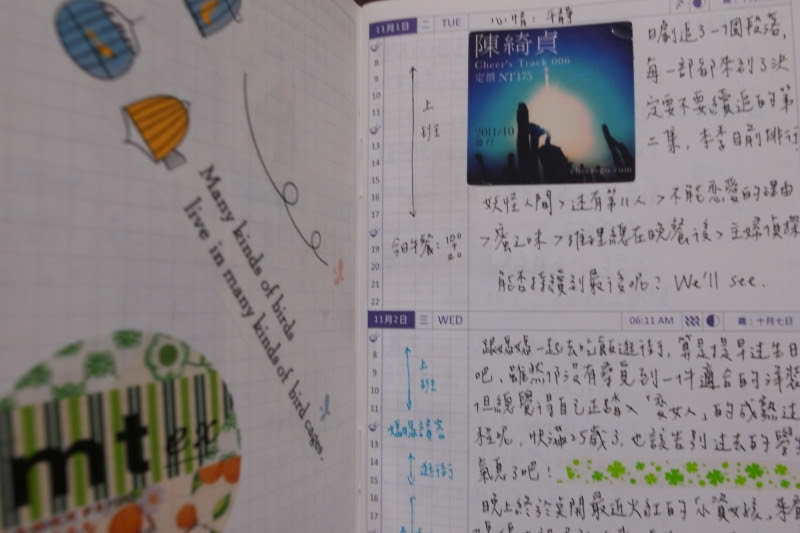 Many kinds of birds
live in many kinds of bird cages.
mt ex
11月1日 二 TUE 心情：平靜
8
9
10
11
12
13
14
15
16
17
18
19
20
21
22
上
班
今日午餐：100
+
20
陳綺貞
Cheer's Track 006
定價 NT175
2011/10
cheerego.com
日劇追了一個段落，
每一部都來到了決
定要不要續追的第
二集，本季目前排行
妖怪人間 > 還有第11人 > 不能戀愛的理由
> 蜜之味 > 推理總在晚餐後 > 主婦偵探
能否持續到最後呢？We'll see.
11月2日 三 WED 06:11 AM 農：十月七日
8
9
10
11
12
13
14
15
16
17
上
班
媽媽請客
逛街
跟媽媽一起去吃飯逛街，算是提早過生日
吧，雖然仍沒有尋覓到一件適合的洋裝
但總覺得自己正踏入「熟女人」的成熟過
程呢，快滿25歲了，也該告別過去的學生
氣息了吧！
晚上終於真開最近火紅的「小資女孩，